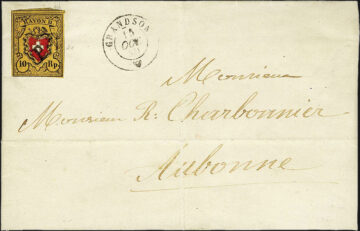 RAYON II
10 Rp.
GRANDSON
15
OCT
Monsieur
Monsieur R: Charbonnier
Aubonne